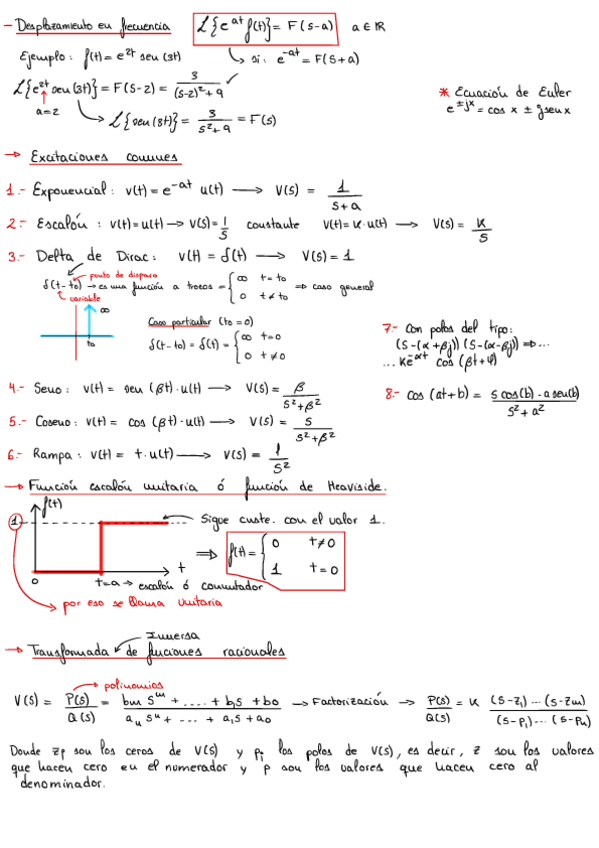 - Desplazamiento en frecuencia
ℒ{e^at f(t)} = F(s-a) a ∈ ℝ
Ejemplo: f(t) = e^2t sen(3t)
↳ si: e^-at = F(s+a)
ℒ{e^2t sen(3t)} = F(s-2) = 3/((s-2)²+9) ✓
a=2
↳ ℒ{sen(3t)} = 3/(s²+9) = F(s)
* Ecuación de Euler
e^±jx = cos x ± j sen x
→ Excitaciones comunes
1.- Exponencial: v(t) = e^-at u(t) → V(s) = 1/(s+a)
2.- Escalón: v(t) = u(t) → V(s) = 1/s constante v(t) = K·u(t) → V(s) = K/s
3.- Delta de Dirac: v(t) = δ(t) → V(s) = 1
punto de disparo
δ(t-t0) → es una función a trozos = { ∞ t=t0
0 t≠t0 ⇒ caso general
variable
∞
t0
Caso particular (t0=0)
δ(t-t0) = δ(t) = { ∞ t=0
0 t≠0
7.- Con polos del tipo:
(s-(α+βj)) (s-(α-βj)) ⇒...
... Ke^-αt cos(βt+φ)
4.- Seno: v(t) = sen(βt)·u(t) → V(s) = β/(s²+β²)
8.- cos(at+b) = (s cos(b) - a sen(b))/(s²+a²)
5.- Coseno: v(t) = cos(βt)·u(t) → V(s) = s/(s²+β²)
6.- Rampa: v(t) = t·u(t) → V(s) = 1/s²
→ Función escalón unitaria ó función de Heaviside.
f(t)
1
Sigue cnste. con el valor 1.
⇒ f(t) = { 0 t≠0
1 t=0
0
t=a → escalón ó conmutador
t
por eso se llama unitaria
Inversa
→ Transformada de funciones racionales
polinomios
V(s) = P(s)/Q(s) = (bm s^m + .... + b1s + b0)/(an s^n + ... + a1s + a0) → Factorización → P(s)/Q(s) = K (s-z1)...(s-zm)/(s-p1)...(s-pn)
Donde zp son los ceros de V(s) y pi los polos de V(s), es decir, z son los valores
que hacen cero en el numerador y p son los valores que hacen cero al
denominador.